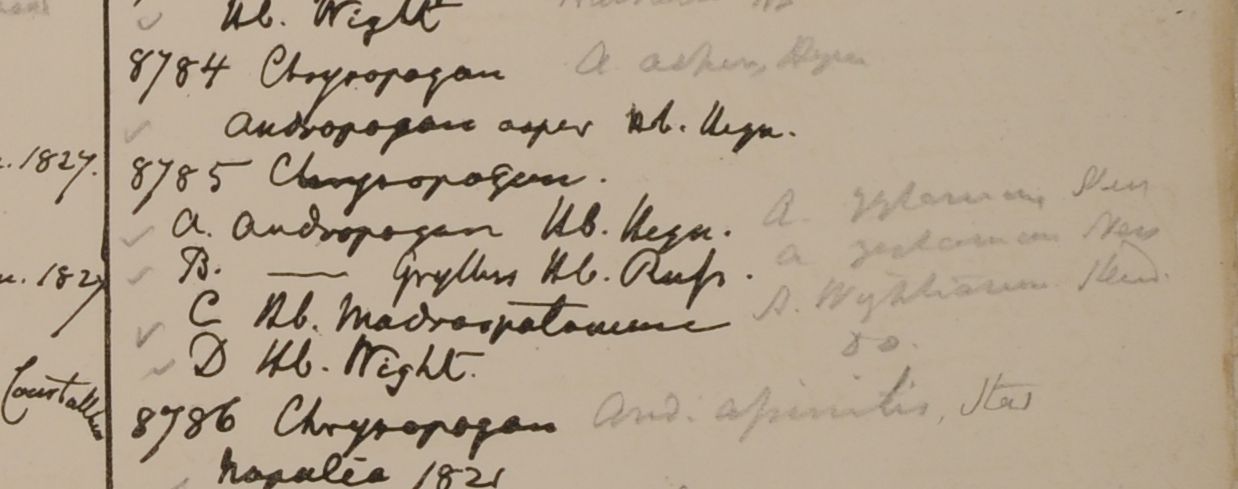 Hb. Wight
8784 Chrysopogon A asper, Heyn
Andropogon asper Hb. Heyn.
1827. 8785 Chrysopogon.
A. Andropogon Hb. Heyn. A. zeylanicum
B. —— Gryllus Hb. Russ. A zeylanicum Nees
1827
C Hb. Madraspatanense A. Wightianum Steud.
D Hb. Wight. do.
Courtallum
8786 Chrysopogon And. Steud
Napalia 1821